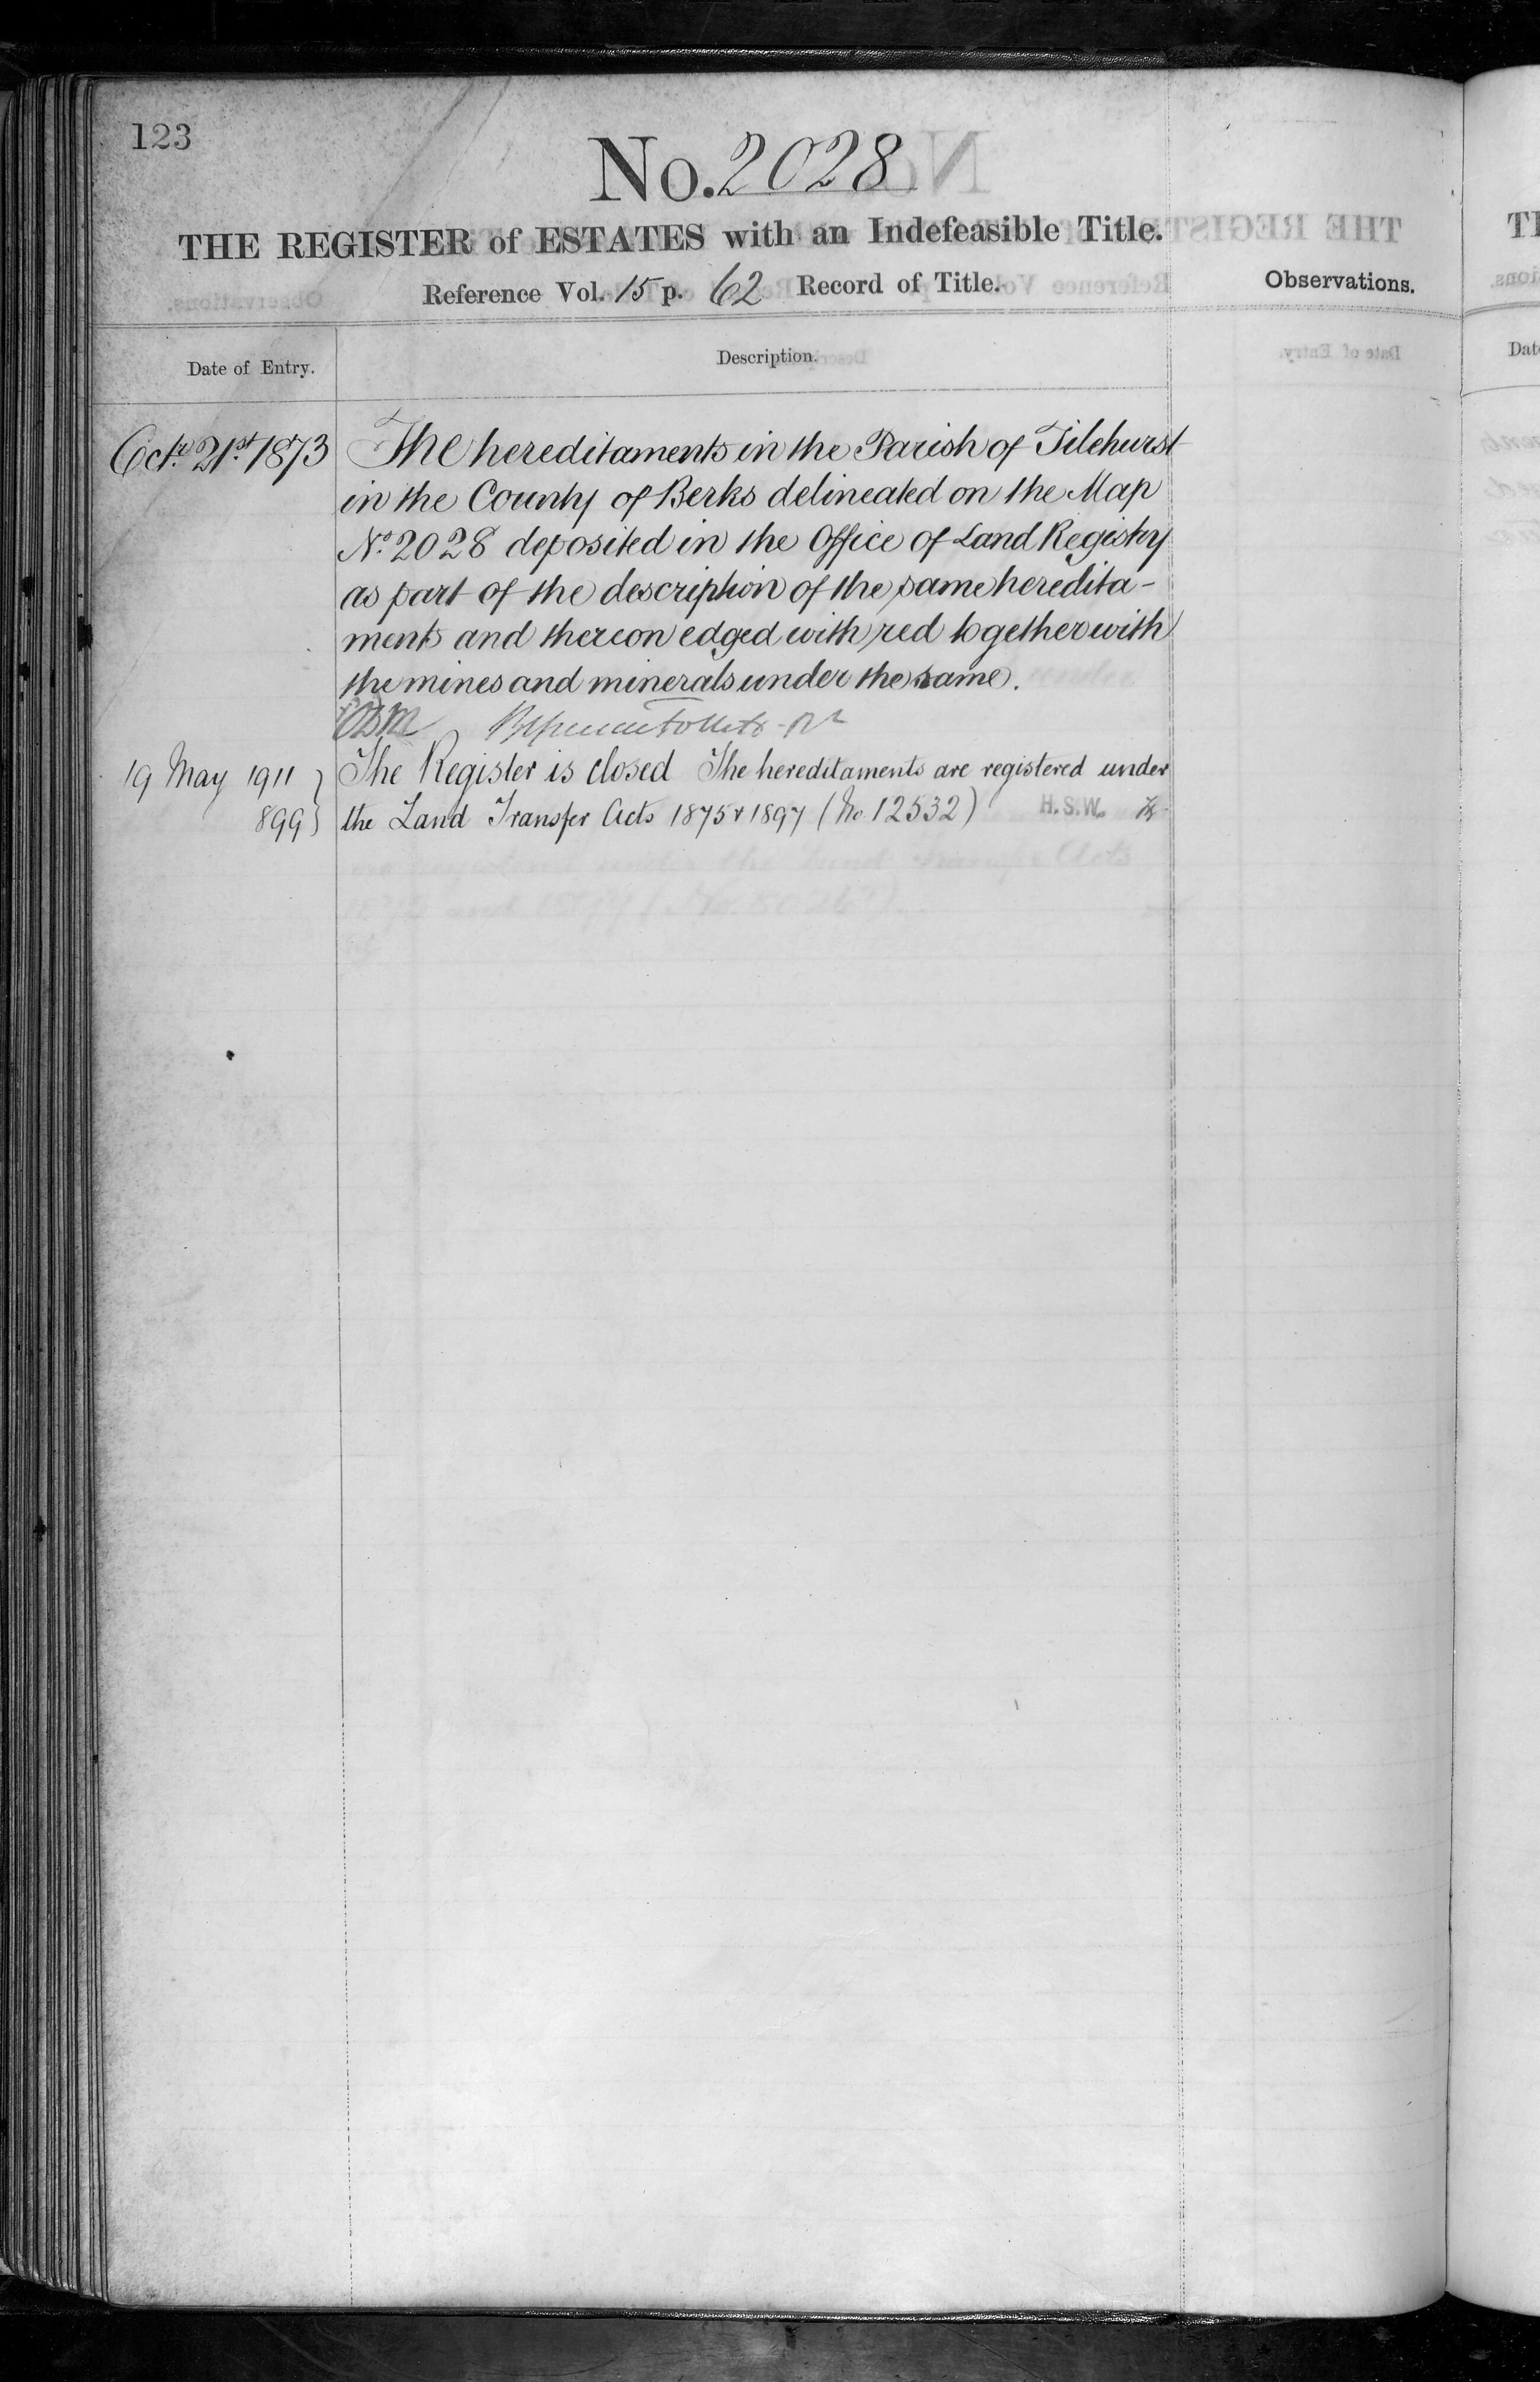 123
No. 2028
THE REGISTER of ESTATES with an Indefeasible Title.
Reference Vol. 15 p. 62 Record of Title.
Observations.
Date of Entry.
Description.
Octr. 21st 1873
The hereditaments in the Parish of Tilehurst
in the County of Berks delineated on the Map
No. 2028 deposited in the Office of Land Registry
as part of the description of the same heredita-
ments and thereon edged with red together with
the mines and minerals under the same.
19 May 1911
899
The Register is closed The hereditaments are registered under
the Land Transfer Acts 1875 & 1897 (No. 12532) H.S.W.